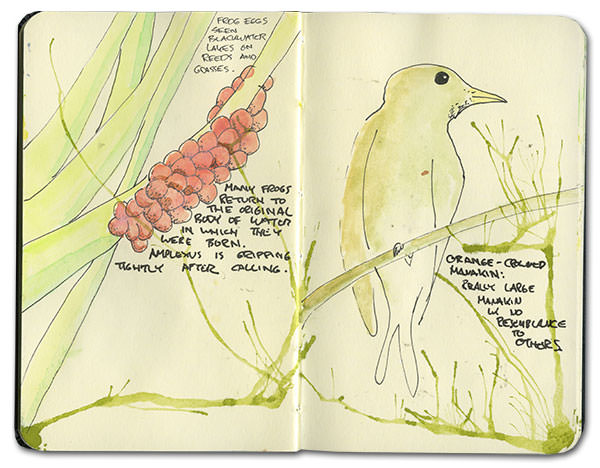 FROG EGGS
SEEN
BLACKWATER
LAKES ON
REEDS AND
GRASSES.
MANY FROGS
RETURN TO
THE ORIGINAL
BODY OF WATER
IN WHICH THEY
WERE BORN.
AMPLEXUS IS GRIPPING
TIGHTLY AFTER CALLING.
ORANGE-CROWNED
MANAKIN:
REALLY LARGE
MANAKIN
W/ NO
RESEMBLANCE
TO
OTHERS